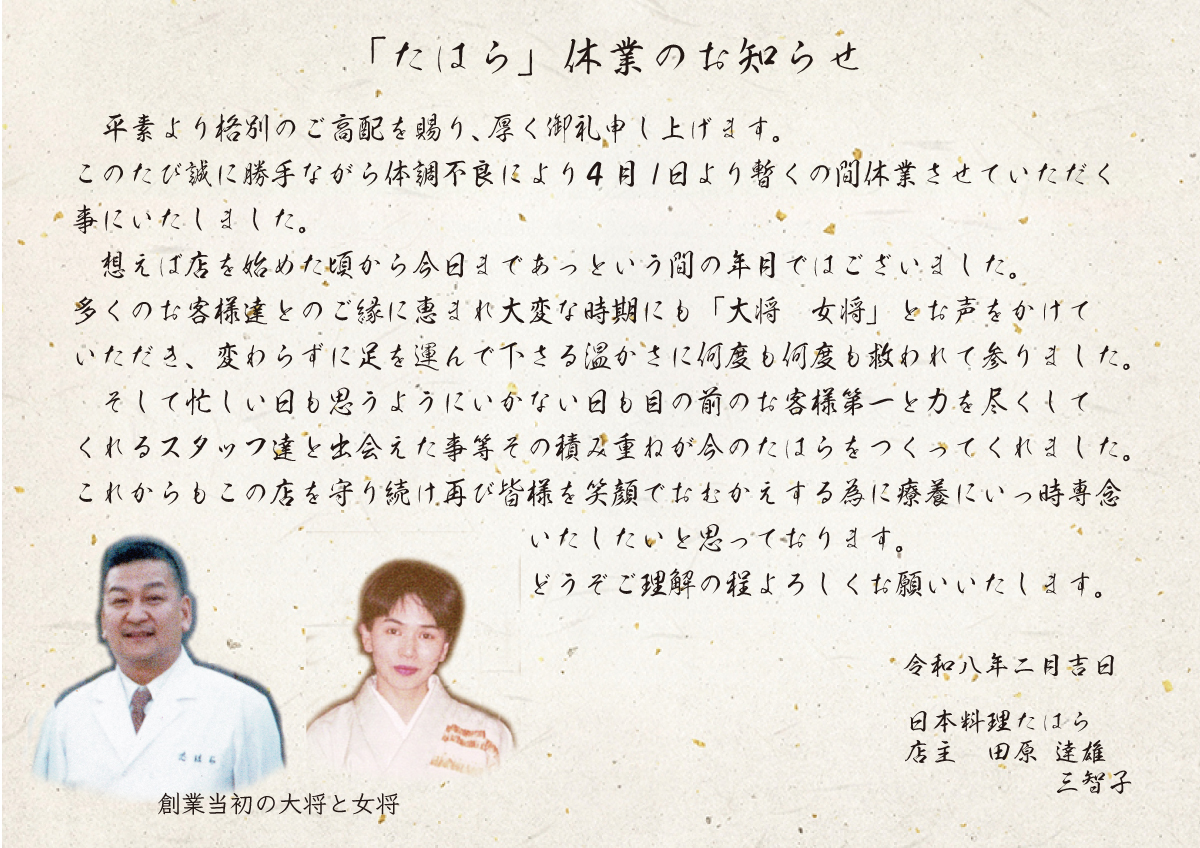 「たはら」休業のお知らせ
平素より格別のご高配を賜り、厚く御礼申し上げます。
このたび誠に勝手ながら体調不良により4月1日より暫くの間休業させていただく
事にいたしました。
想えば店を始めた頃から今日まであっという間の年月ではございました。
多くのお客様達とのご縁に恵まれ大変な時期にも「大将　女将」とお声をかけて
いただき、変わらずに足を運んで下さる温かさに何度も何度も救われて参りました。
そして忙しい日も思うようにいかない日も目の前のお客様第一と力を尽くして
くれるスタッフ達と出会えた事等その積み重ねが今のたはらをつくってくれました。
これからもこの店を守り続け再び皆様を笑顔でおむかえする為に療養にいっ時専念
いたしたいと思っております。
どうぞご理解の程よろしくお願いいたします。
令和八年二月吉日
日本料理たはら
店主　田原 達雄
三智子
創業当初の大将と女将